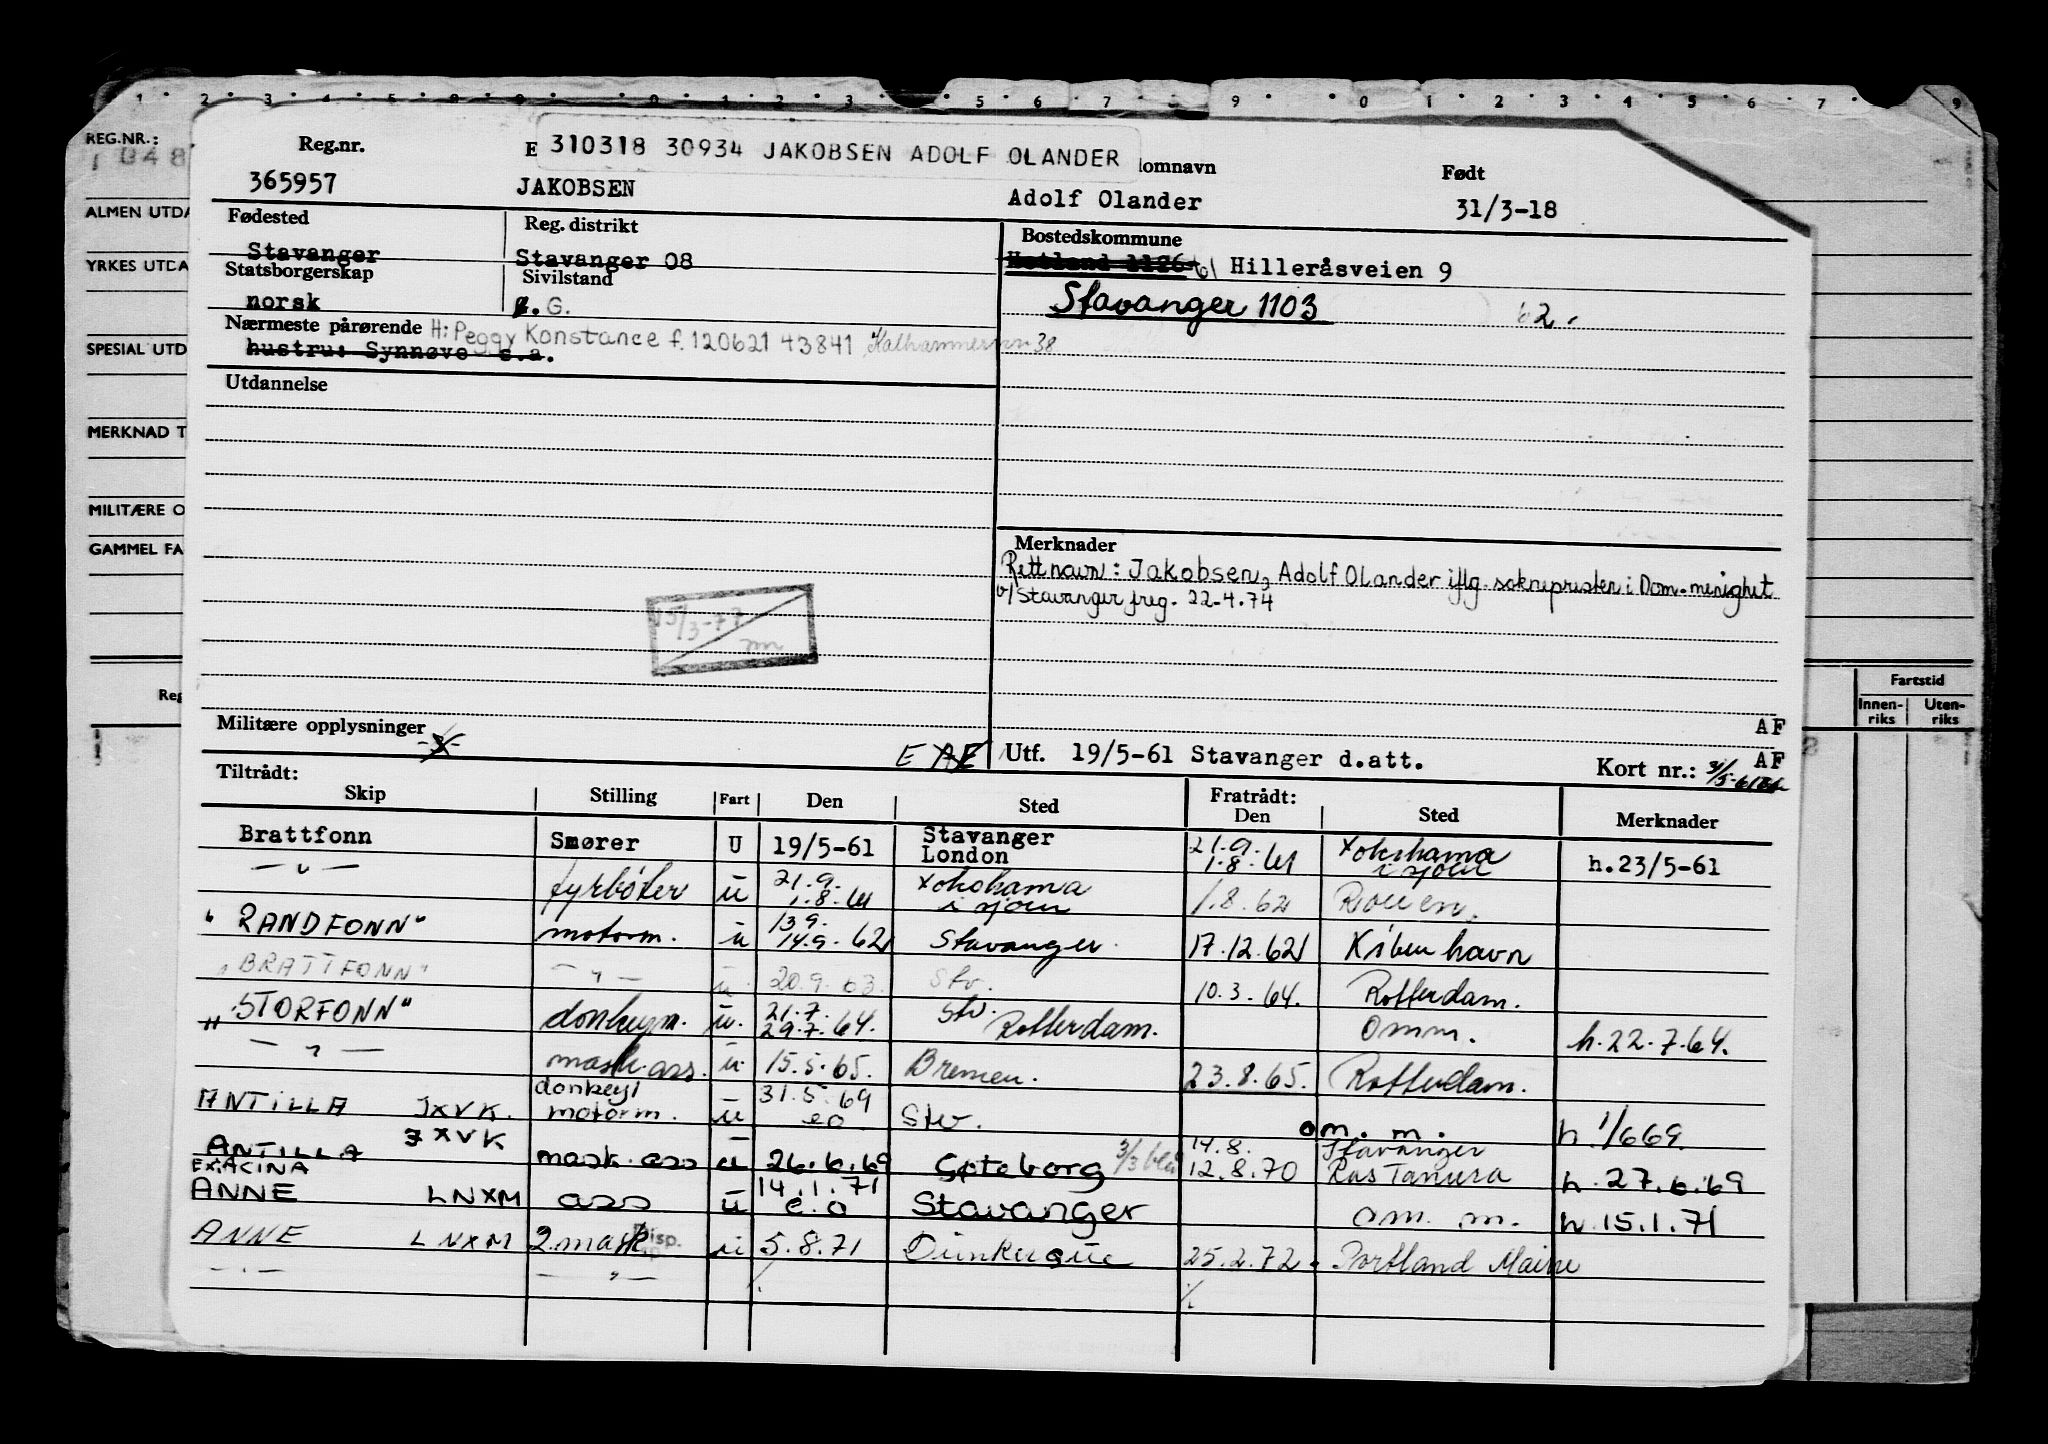 1 2 3 4 5 6 7 8 9 0 1 2 3 5 6 7 8 9 0 1 2 3 4 5 6 7 9
REG.NR.:
ALMEN UTDA
YRKES UTDA
SPESIAL UTD
MERKNAD T
MILITÆRE O
GAMMEL FA
Reg
Fartstid
Innen-riks Uten-riks
310318 30934 JAKOBSEN ADOLF OLANDER
Reg.nr. E lomnavn Født
365957 JAKOBSEN Adolf Olander 31/3-18
Fødested Reg. distrikt Bostedskommune
Stavanger Stavanger 08 Hetland 1126 61 Hilleråsveien 9
Statsborgerskap Sivilstand
norsk G. Stavanger 1103 62.
Nærmeste pårørende H: Peggy Konstance f. 120621 43841 38
hustru: Synnøve s.a.
Utdannelse
Merknader
Rett navn: Jakobsen, Adolf Olander iflg. soknepresten i Dom.menighet
v/Stavanger freg. 22-4.74
15/3-77
m
Militære opplysninger
-3-
AF
E AF Utf. 19/5-61 Stavanger d.att. Kort nr.: AF
Tiltrådt: Fratrådt:
Skip Stilling Fart Den Sted Den Sted Merknader
Brattfonn Smører U 19/5-61 Stavanger London 21.9. 1.8.61 Yokohama i sjøen h.23/5-61
— " — fyrbøter u 21.9. 1.8.61 Yokohama i sjøen 1.8.62 Rouen.
"RANDFONN" motorm. u 13.9. 14.9.62 Stavanger. 17.12.62 København
"BRATTFONN" — " — u. 20.9.63. Stv. 10.3.64. Rotterdam.
"STORFONN" donkeym. u. 21.7. 29.7.64. Stv. Rotterdam. omm. h.22.7.64.
— " — mask.ass. u. 15.5.65. Bremen. 23.8.65. Rotterdam.
ANTILLA JXVK. donkey/motorm. u 31.5.69 eo Stv. om.m. h 1/669.
ANTILLA JXVK mask.ass u 26.6.69 Gøteborg 14.8. 12.8.70 Stavanger Ras Tanura h.27.6.69
EX: ACINA
ANNE LNXM ass u 14.1.71 e.o Stavanger om.m. h.15.1.71
ANNE LNXM 2.mask Disp. u 5.8.71 Dunkerque 25.2.72. Portland Maine
— " — — " — /. /.